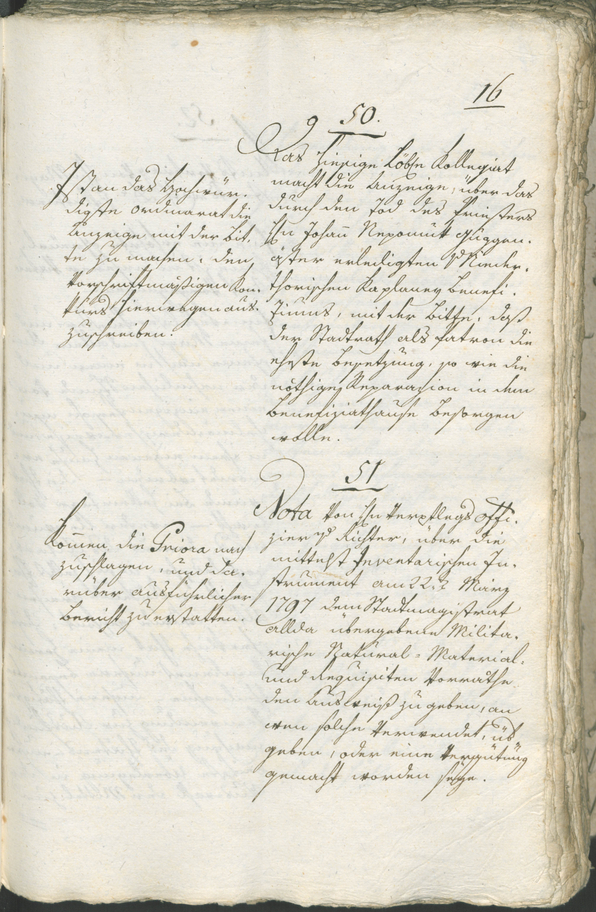 16
50.
Das hiesige Löbl. Kollegiat
macht die Anzeige, über das
durch den Tod des Priesters
Hn Johann Nepomuk Guggen-
erledigten
thorischen Kaplaney Benefi-
ziums, mit der Bitte, daß
der Stadtrath als Patron die
eheste Besetzung, so wie die
nöthige Reparazion in dem
Benefiziathause besorgen
wolle.
Ist an das Hochwür-
digste Ordinariat die
Anzeige mit der Bit-
te zu machen, den
vorschriftmäßigen Kon-
kurs hierwegen aus-
zuschreiben.
51
Nota von Hn Verpflegs Offi-
zier Richter, über die
mittelst Inventarischen In-
strument am 22. März
1797 dem Stadtmagistrat
allda übergebene Milita-
rische Natural- Material-
und Requisiten Vorräthe
den Ausweiß zu geben, an
wen solche verwendet, üb-
geben, oder eine Vergütung
gemacht worden seye.
Komen die Priora nach
zuschlagen, und da-
rüber ausführlicher
Bericht zu erstatten.